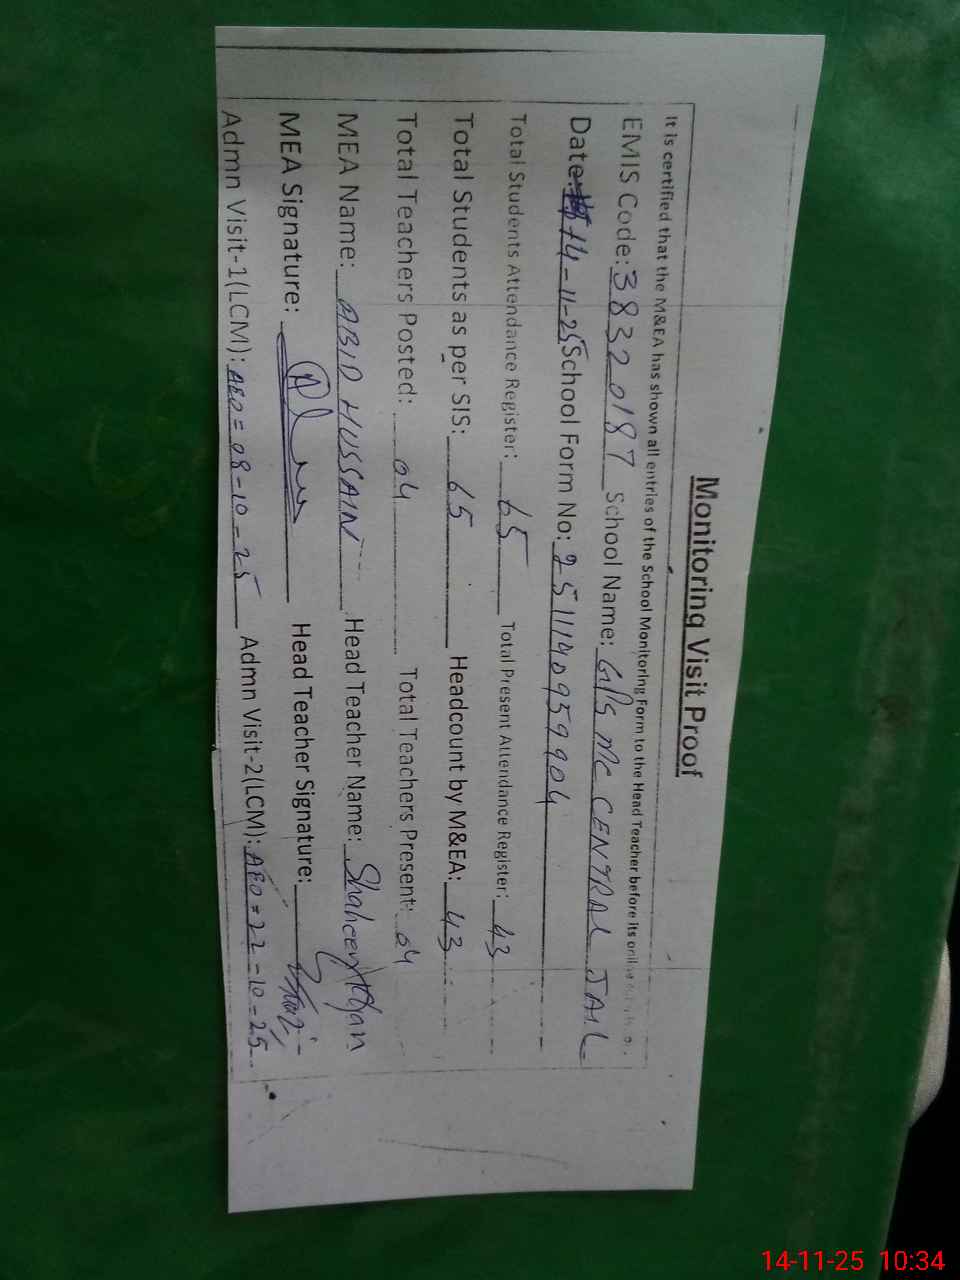 Monitoring Visit Proof
It is certified that the M&EA has shown all entries of the School Monitoring Form to the Head Teacher before its online
EMIS Code: 38320187 School Name: GPS MC CENTRAL JAIL
Date: 14-11-25 School Form No: 251114095904
Total Students Attendance Register: 65 Total Present Attendance Register: 43
Total Students as per SIS: 65 Headcount by M&EA: 43
Total Teachers Posted: 04 Total Teachers Present: 04
MEA Name: ABID HUSSAIN Head Teacher Name: Shaheen
MEA Signature: Head Teacher Signature:
Admn Visit-1(LCM): AEO = 08-10-25 Admn Visit-2(LCM): AEO = 22-10=25
14-11-25 10:34